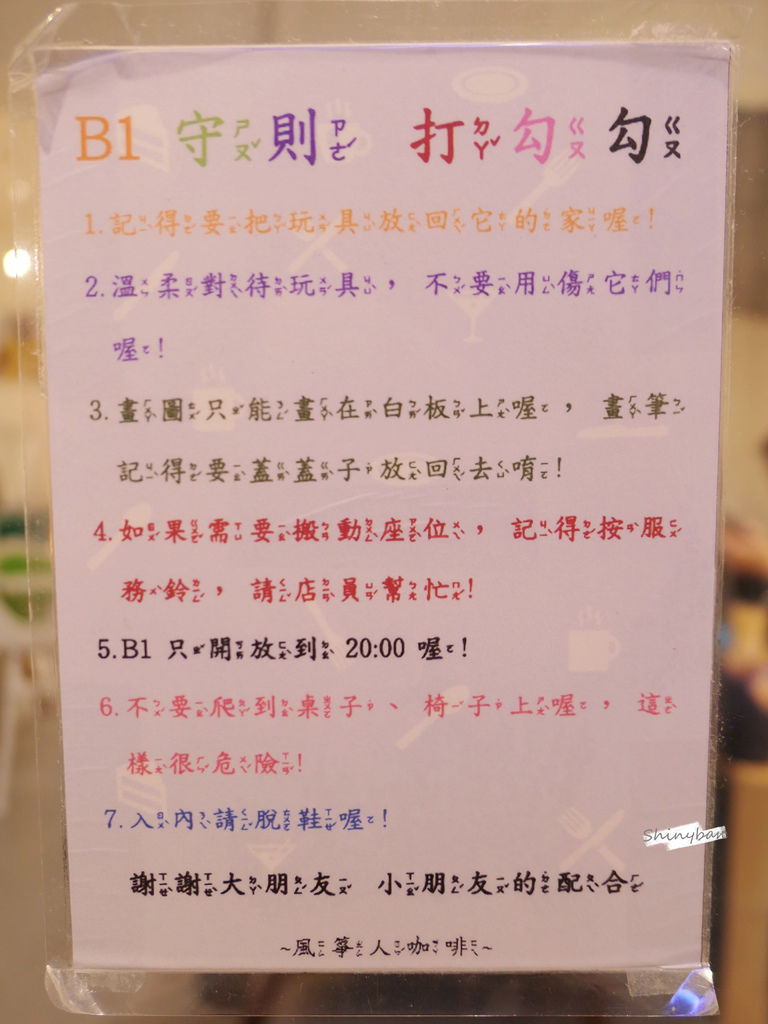 B1 守則 打勾勾
1.記得要把玩具放回它的家喔!
2.溫柔對待玩具，不要用傷它們
喔!
3.畫圖只能畫在白板上喔，畫筆
記得要蓋蓋子放回去唷!
4.如果需要搬動座位，記得按服
務鈴，請店員幫忙!
5.B1 只開放到 20:00 喔!
6.不要爬到桌子、椅子上喔，這
樣很危險!
7.入內請脫鞋喔!
謝謝大朋友 小朋友的配合
~風箏人咖啡~
Shinyban